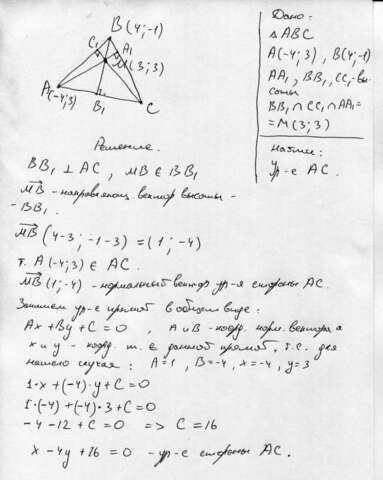 B(4;-1)
C₁
A₁
M(3;3)
A(-4;3)
B₁
C
Дано:
△ABC
A(-4;3), B(4;-1)
AA₁, BB₁, CC₁-вы-
соты
BB₁ ∩ CC₁ ∩ AA₁=
= M(3;3)
Найти:
ур-е AC.
Решение.
BB₁ ⊥ AC, MB ∈ BB₁
MB - направляющ. вектор высоты -
- BB₁.
MB (4-3; -1-3) = (1; -4)
т. A(-4;3) ∈ AC.
MB (1;-4) - нормальный вектор ур-я стороны AC.
Запишем ур-е прямой в общем виде:
Ax+By+C=0, A и B - коорд. норм. вектора, а
x и y - коорд. т. ∈ данной прямой, т.е. для
нашего случая: A=1, B=-4, x=-4, y=3
1·x+(-4)·y+C=0
1·(-4)+(-4)·3+C=0
-4-12+C=0 => C=16
x-4y+16=0 - ур-е стороны AC.